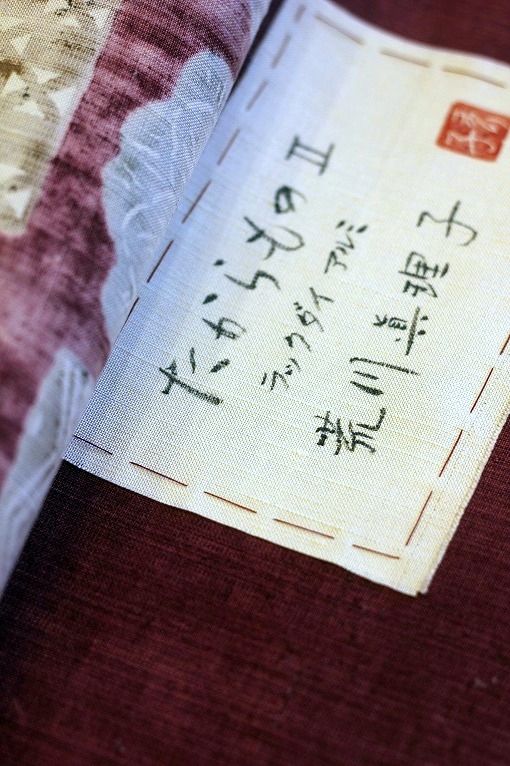 たからものⅡ
ラックダイ アルミ
荒川真理子